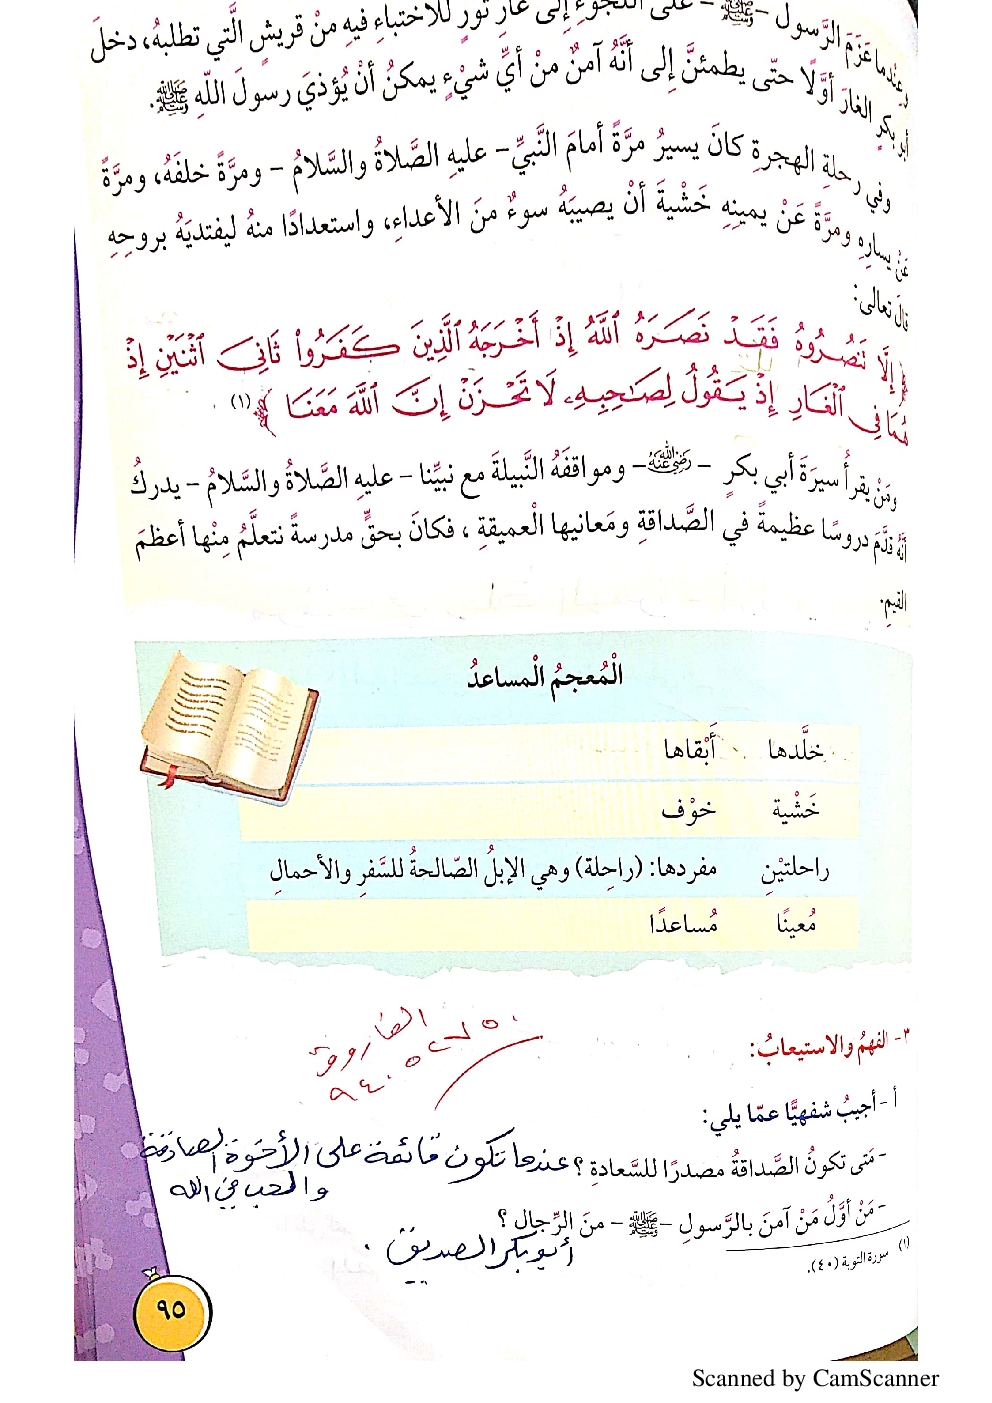 وعندما عَزَمَ الرَّسول -ﷺ- على اللجوءِ إلى غارِ ثورٍ للاختباءِ فيهِ منْ قريشٍ الَّتي تطلبهُ، دخلَ
أبو بكرٍ الغارَ أوَّلًا حتّى يطمئنَّ إلى أنَّهُ آمنٌ منْ أيِّ شيْءٍ يمكنُ أنْ يُؤذيَ رسولَ اللّهِ ﷺ.
وفي رحلةِ الهجرةِ كانَ يسيرُ مرَّةً أمامَ النَّبيِّ- عليهِ الصَّلاةُ والسَّلامُ - ومرَّةً خلفَهُ، ومرَّةً
عَنْ يسارِهِ ومرَّةً عَنْ يمينِهِ خَشْيةَ أنْ يصيبَهُ سوءٌ منَ الأعداءِ، واستعدادًا منهُ ليفتديَهُ بروحِهِ
قالَ تعالى:
﴿ إِلَّا تَنصُرُوهُ فَقَدْ نَصَرَهُ ٱللَّهُ إِذْ أَخْرَجَهُ ٱلَّذِينَ كَفَرُوا۟ ثَانِىَ ٱثْنَيْنِ إِذْ
هُمَا فِى ٱلْغَارِ إِذْ يَقُولُ لِصَـٰحِبِهِۦ لَا تَحْزَنْ إِنَّ ٱللَّهَ مَعَنَا ﴾ (١) .
ومَنْ يقرأُ سيرَةَ أبي بكرٍ - رَضِيَ اللَّهُ عَنْهُ- ومواقفَهُ النَّبيلةَ مع نبيِّنا - عليهِ الصَّلاةُ والسَّلامُ - يدركُ
أنَّهُ قدَّمَ دروسًا عظيمةً في الصَّداقةِ ومَعانيها الْعميقةِ ، فكانَ بحقٍّ مدرسةً نتعلَّمُ مِنْها أعظمَ
القيمِ.
الْمُعجمُ الْمساعدُ
خلَّدها أَبْقاها
خَشْية خوْف
راحلتيْنِ مفردها: (راحِلة) وهي الإبلُ الصّالحةُ للسَّفرِ والأحمالِ
مُعينًا مُساعدًا
٣- الفهمُ والاستيعابُ:
الفاروق
٩٤٠٥٢٧٥٠
أ -أجيبُ شفهيًّا عمّا يلي:
- مَتى تكونُ الصَّداقةُ مصدرًا للسَّعادةِ ؟ عندما تكون قائمة على الأخوة الصادقة
والحب في الله
- مَنْ أوَّلُ مَنْ آمنَ بالرَّسولِ -ﷺ- منَ الرِّجالِ ؟
أبو بكر الصديق .
(١) سورة التوبة (٤٠).
٩٥
Scanned by CamScanner